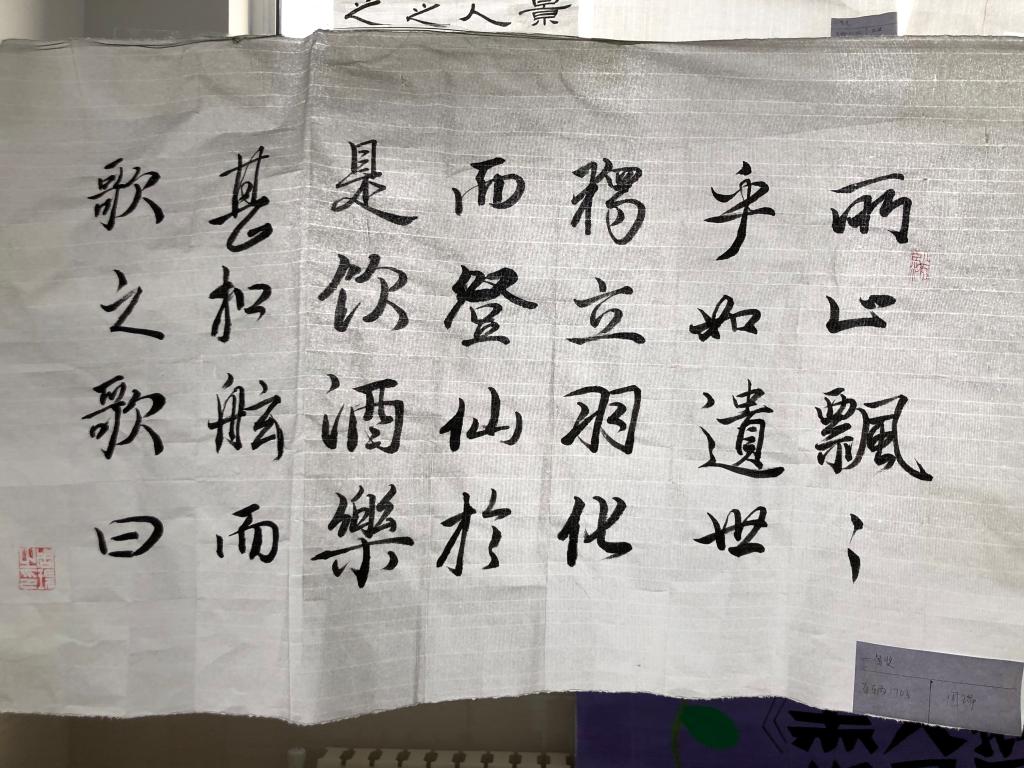 景
人
之
之
所止飄〻
乎如遺世
獨立羽化
而登仙於
是饮酒樂
甚扣舷而
歌之歌曰